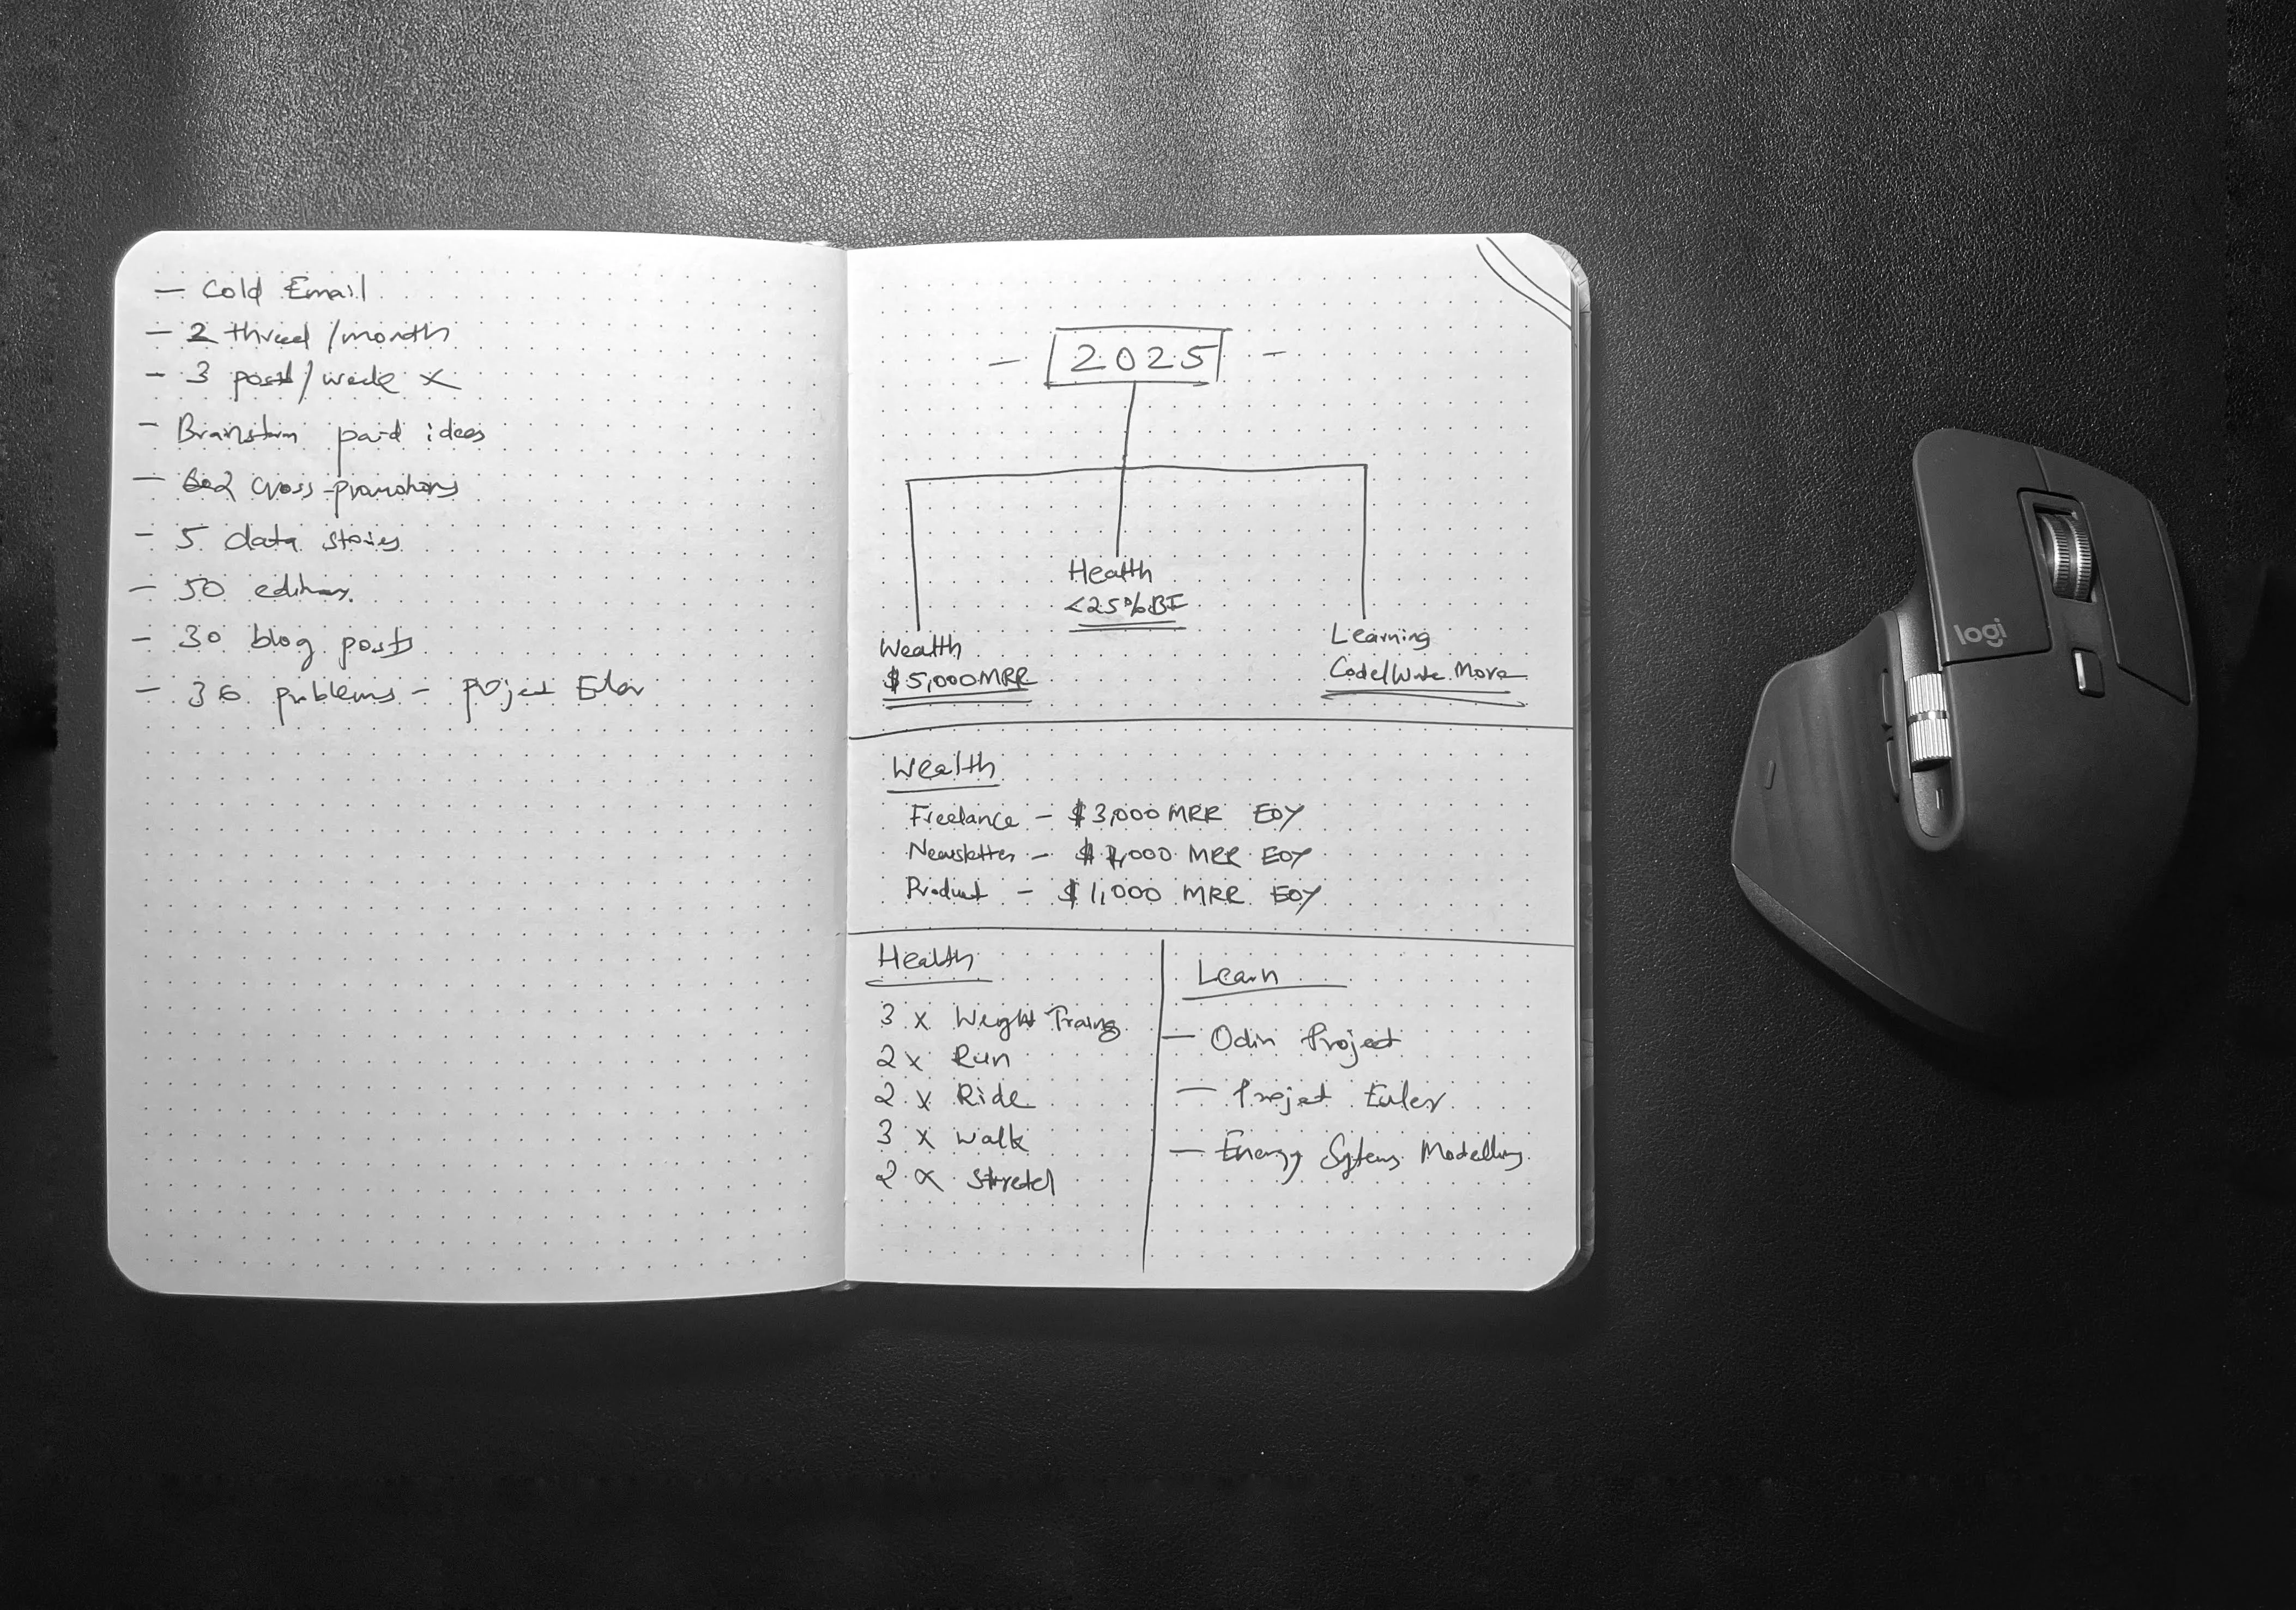 — Cold Email
— 2 thread /month
— 3 post/week X
— Brainstorm paid ideas
— cross-promotions
— 5 data stories
— 50 editions
— 30 blog posts
— 36 problems — project Euler
— 2025 —
Health
<25% BF
Wealth
$5,000 MRR
Learning
Code/Write More
Wealth
Freelance — $3,000 MRR EOY
Newsletter — MRR EOY
Product — $1,000 MRR EOY
Health
3 x Weight Training
2 x Run
2 x Ride
3 x Walk
2 x Stretch
Learn
— Odin Project
— Project Euler
— Energy Systems Modelling
logi